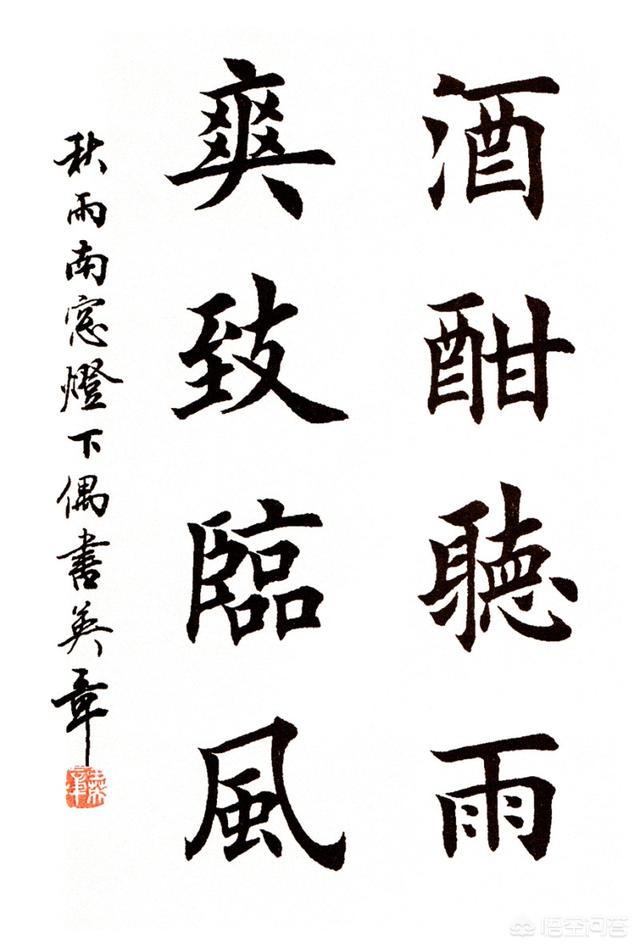 酒酣聽雨
爽致臨風
秋雨南窓燈下偶書英章
悟空问答